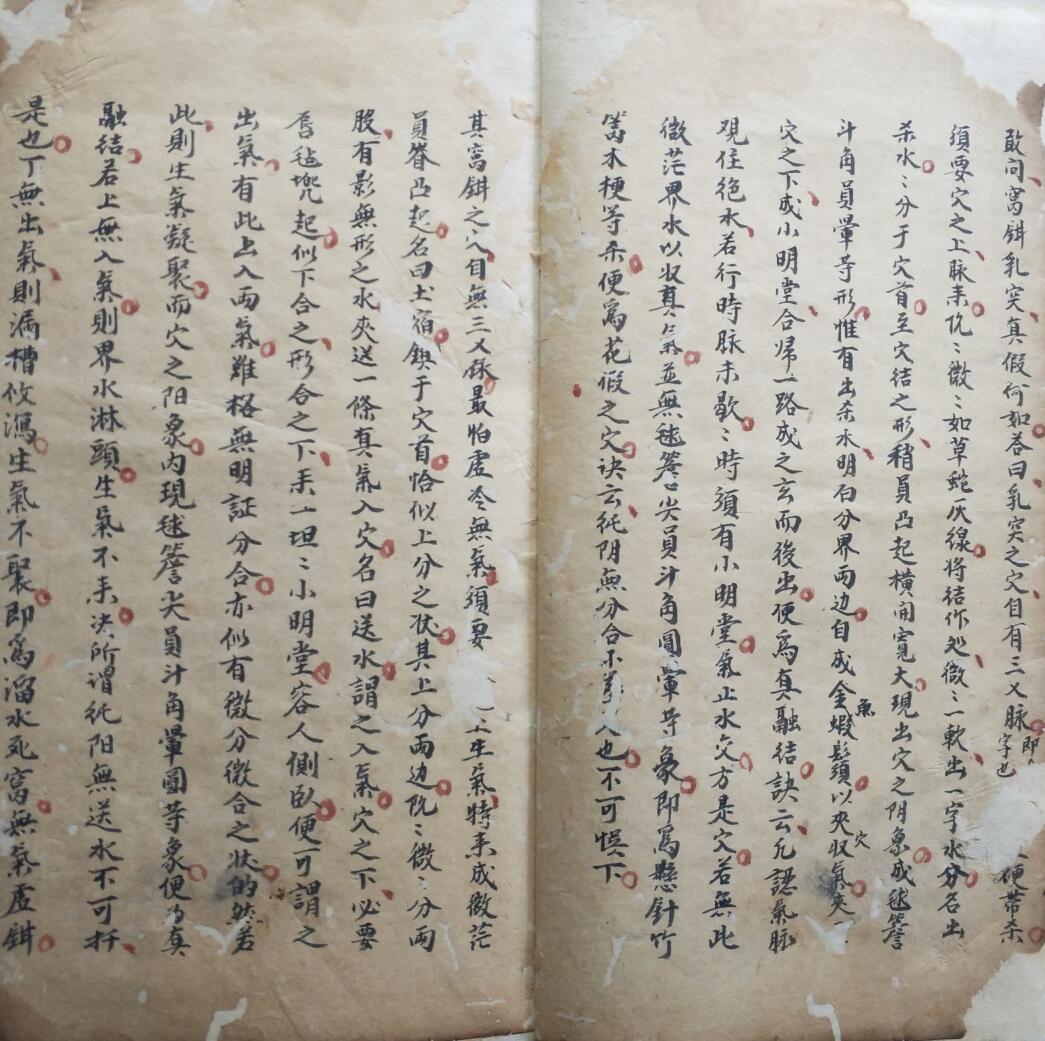 敢问窩鉗乳突真假何如答曰乳突之穴自有三乂脉即字也硬带杀
須要穴之上脉来仿〻微〻如草蛇灰線将结作处微〻一軟出一字水分名出
杀水〻分于穴首至穴结之形稍員凸起横开寬大現出穴之阴象成毬簷
斗角員暈等形惟有出杀水明白分界两边自成金魚蝦鬚以夾穴收氣夹
穴之下成小明堂合歸一路成之玄而後出便為真融结訣云凢認氣脉
观住绝水若行時脉未歇〻時須有小明堂氣止水交方是穴若無此
微茫界水以收真氣並無毬簷尖員斗角圓暈等象即爲懸針竹
篙木梗等杀便為花假之穴诀云純阴無分合不人也不可悞下
其窩鉗之穴自無三乂脉最怕虚冷無氣須要上生氣特来成微茫
員脊凸起名曰土宿䥘于穴首恰似上分之状其上分两边仿〻微〻分两
股有影無形之水夾送一條真氣入穴名曰送水謂之入氣穴之下必要
唇毡兜起似下合之形合之下来一坦〻小明堂容人側臥便可謂之
出氣有此上入两氣雖格無明証分合亦似有微分微合之状的然若
此則生氣凝聚而穴之阳象内現毬簷尖員斗角暈圓等象便為真
融结若上無入氣則界水淋頭生氣不来决所谓純阳無送水不可扦
是也丁無出氣則漏槽攸瀉生氣不聚即爲溜水死窩無氣虚鉗